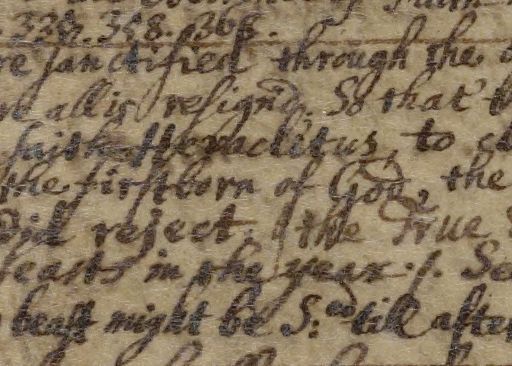 336. 358. 368.
re sanctified through the
all is resign'd, So that
saith Heraclitus, to
the firstborn of God, the
did reject, the True
feasts in the year ./. Se
beast might be S:ed till after